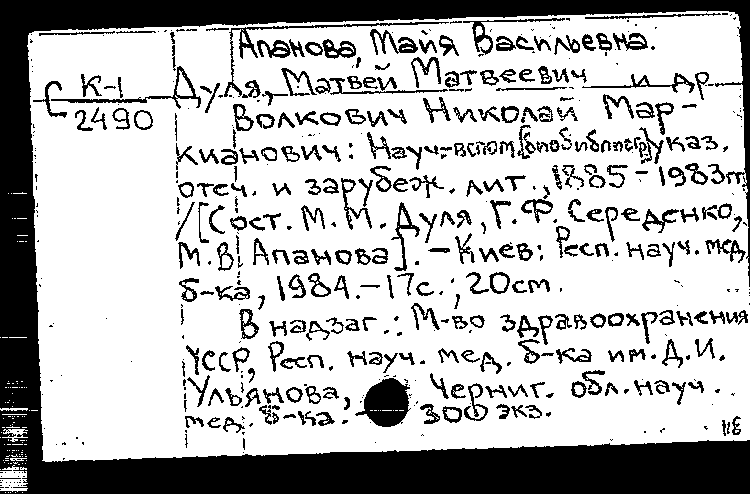 Апанова, Майя Васильевна.
С К-1 Дуля, Матвей Матвеевич и др
2490 Волкович Николай Мар-
кианович: Науч.-вспом. [биобиблиогр] указ.
отеч. и зарубеж. лит., 1885-1983гг
/[Сост. М. М. Дуля, Г. Ф. Середенко,
М. В. Апанова]. - Киев: Респ. науч. мед.
б-ка, 1984. - 17с.; 20см.
В надзаг.: М-во здравоохранения
УССР, Респ. науч. мед. б-ка им. Д. И.
Ульянова, Черниг. обл. науч.
мед. б-ка. - 300 экз.